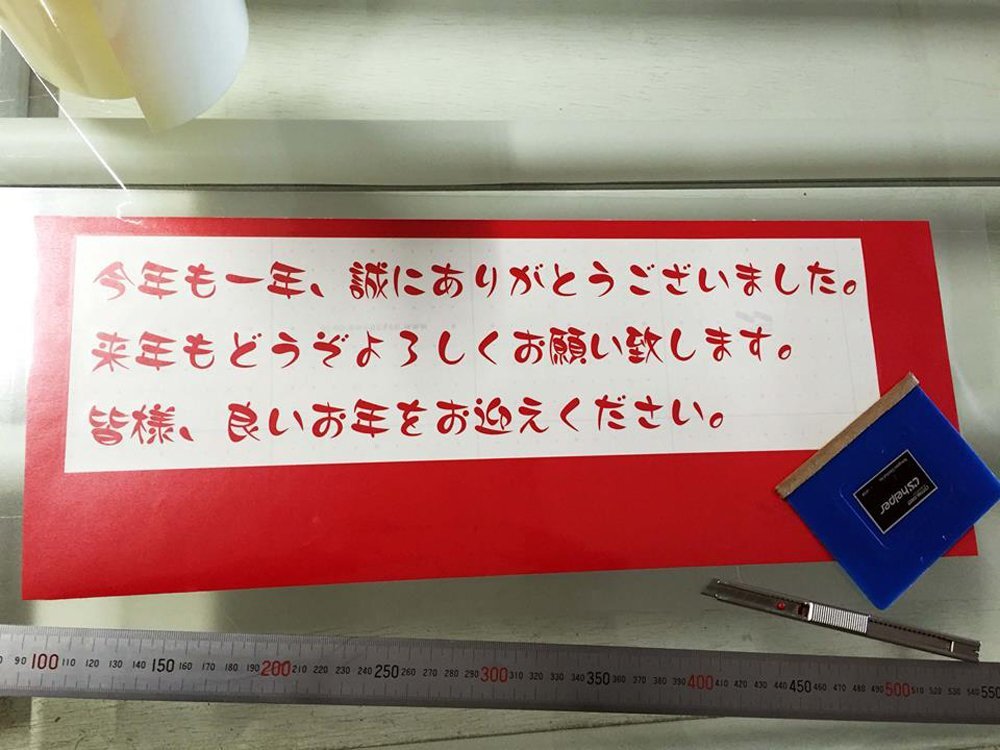 今年も一年、誠にありがとうございました。
来年もどうぞよろしくお願い致します。
皆様、良いお年をお迎えください。
CShelper
90 100 110 120 130 140 150 160 170 180 190 200 210 220 230 240 250 260 270 280 290 300 310 320 330 340 350 360 370 380 390 400 410 420 430 440 450 460 470 480 490 500 510 520 530 540 550